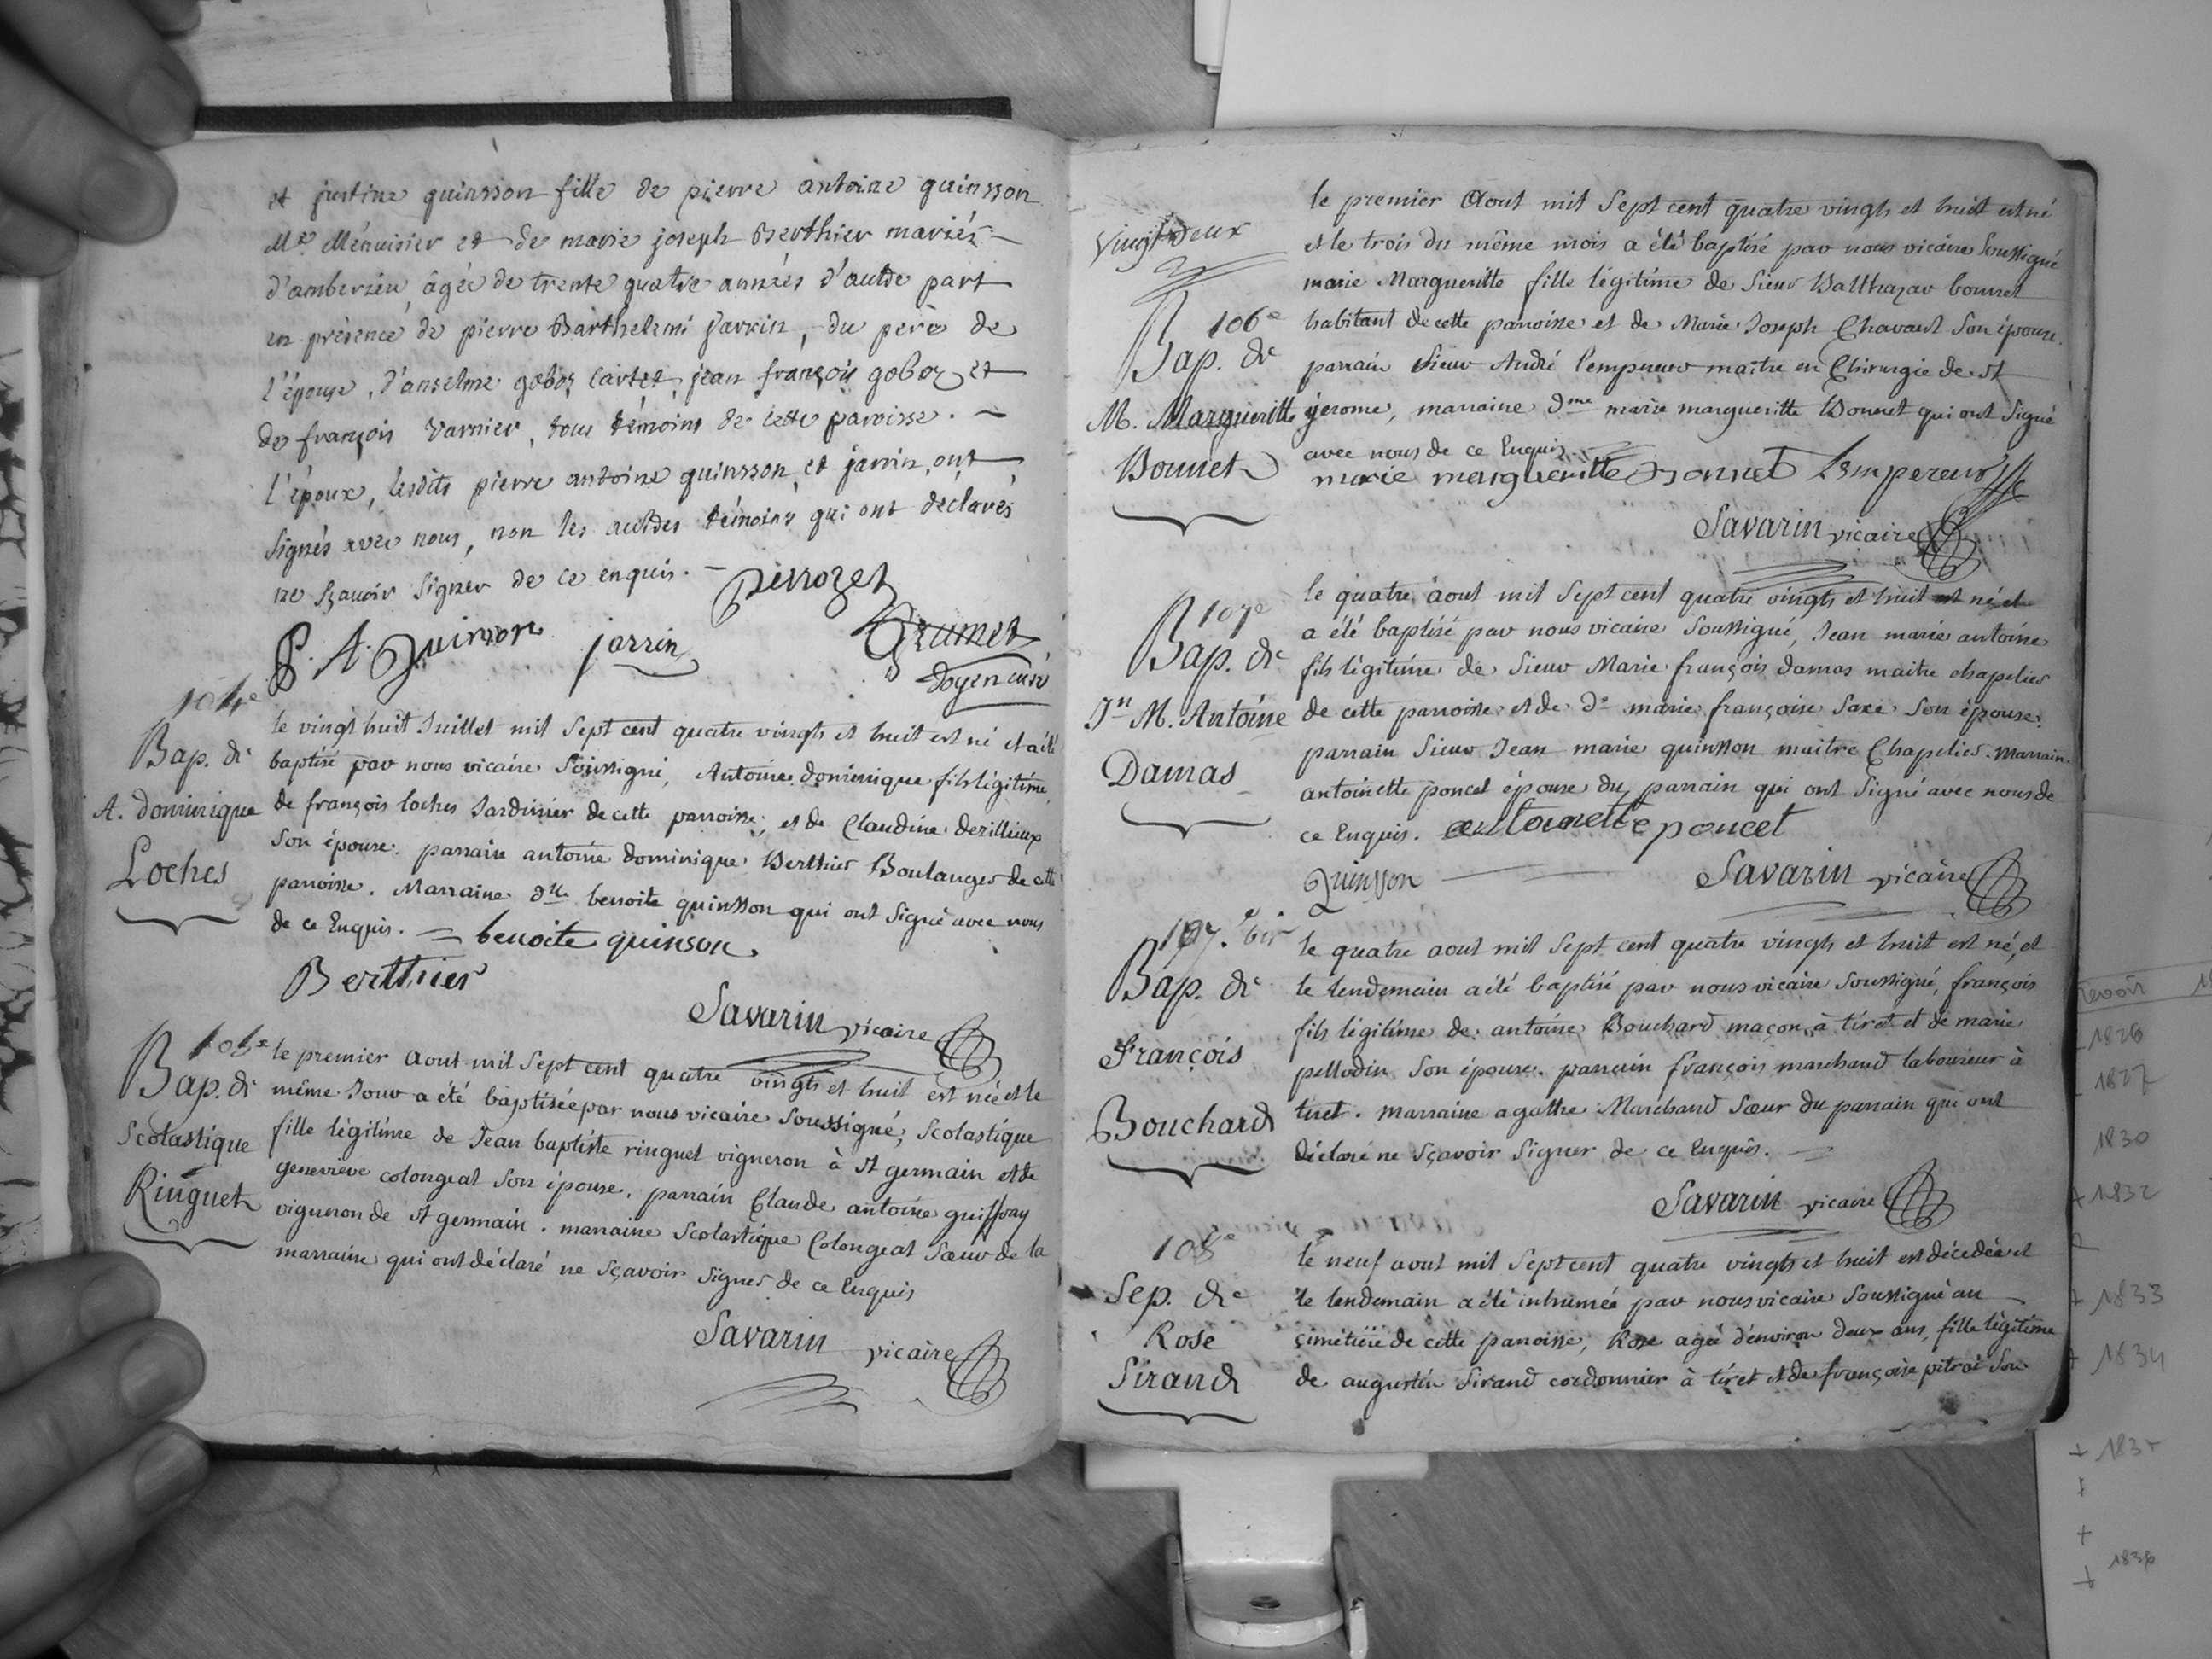 et justine quinsson fille de pierre antoine quinsson
Me Ménuisier et de marie joseph Berthier mariés
d'amberieu, âgée de trente quatre années d'autre part
en présence de pierre Barthelemi jarrin, du père de
l'épouse, d'anselme goboz cartet, jean françois goboz et
de françois Varnier, tous témoins de cette paroisse.
l'époux, lesdits pierre antoine quinsson et jarrin, ont
signés avec nous, non les autres témoins qui ont déclarés
ne sçavoir signer de ce enquis.
perrozet
P. A. Quinson jarrin Grumet
doyen curé
104e
Bap. de
A. dominique
Loches
le vingt huit Juillet mil sept cent quatre vingts et huit est né et a été
baptisé par nous vicaire soussigné, Antoine dominique fils légitime
de françois loches Jardinier de cette parroisse, et de Claudine
son épouse. parrain antoine dominique Berthier Boulanger de cette
parroisse. Marraine dlle benoite quinsson qui ont signé avec nous
de ce Enquis. benoite quinson
Berthier
Savarin vicaire
105e
Bap. de
Scolastique
Ringuet
le premier Aout mil sept cent quatre vingts et huit est née et le
même Jour a été baptisée par nous vicaire soussigné, Scolastique
fille légitime de Jean baptiste ringuet vigneron à St germain et de
geneviève colongeat son épouse. parrain Claude antoine guiffray
vigneron de St germain. marraine Scolastique Colongeat sœur de la
marraine qui ont déclaré ne sçavoir signer de ce Enquis
Savarin vicaire
vingt deux
106e
Bap. de
M. Margueritte
Bonnet
le premier Aout mil sept cent quatre vingts et huit est né
et le trois du même mois a été baptisé par nous vicaire soussigné
marie Margueritte fille légitime de sieur Balthazar bonnet
habitant de cette parroisse et de Marie Joseph Chavant son épouse.
parrain sieur André l'empereur maître en Chirurgie de St
jerome, marraine dme marie margueritte Bonnet qui ont signé
avec nous de ce Enquis.
marie margueritte Bonnet Lempereur
Savarin vicaire
107e
Bap. de
Jn M. Antoine
Damas
le quatre aout mil sept cent quatre vingts et huit est né et
a été baptisé par nous vicaire soussigné, Jean marie antoine
fils légitime de sieur Marie françois damas maitre chapelier
de cette parroisse et de de marie françoise saxe son épouse.
parrain sieur Jean marie quinsson maitre Chapelier. Marraine
antoinette poncet épouse du parrain qui ont signé avec nous de
ce Enquis. antoinette poncet
Quinsson Savarin vicaire
107. bis
Bap. de
François
Bouchard
le quatre aout mil sept cent quatre vingts et huit est né, et
le lendemain a été baptisé par nous vicaire soussigné, françois
fils légitime de antoine Bouchard maçon à tiret et de marie
pellodin son épouse. parrain françois marchand laboureur à
tiret. marraine agathe Marchand sœur du parrain qui ont
déclaré ne sçavoir signer de ce Enquis.
Savarin vicaire
108e
Sep. de
Rose
Sirand
le neuf aout mil sept cent quatre vingts et huit est décedée et
le lendemain a été inhumée par nous vicaire soussigné au
cimétière de cette parroisse, Rose agée d'environ deux ans, fille légitime
de augustin Sirand cordonnier à tiret et de françoise pitrat son
1826
1827
1830
+ 1832
+ 1833
+ 1834
+ 1835
+
+
1836